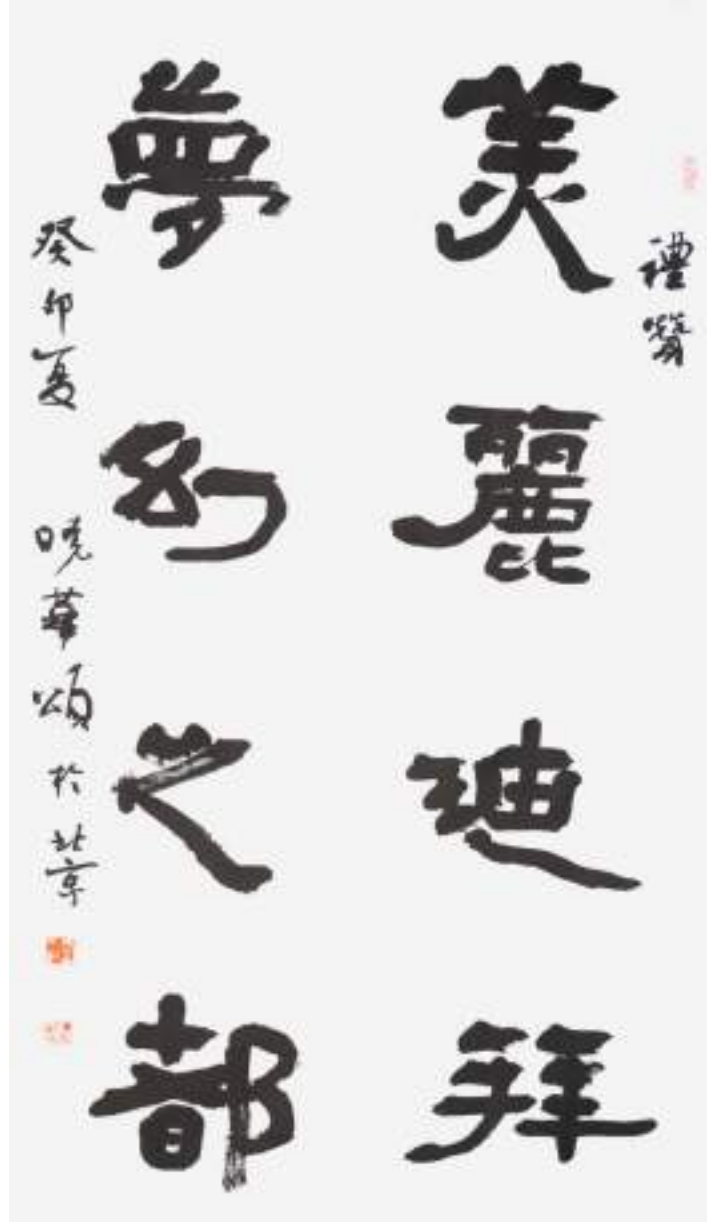 禮贊
美麗迪拜
夢幻之都
癸卯夏 曉華頌於北京